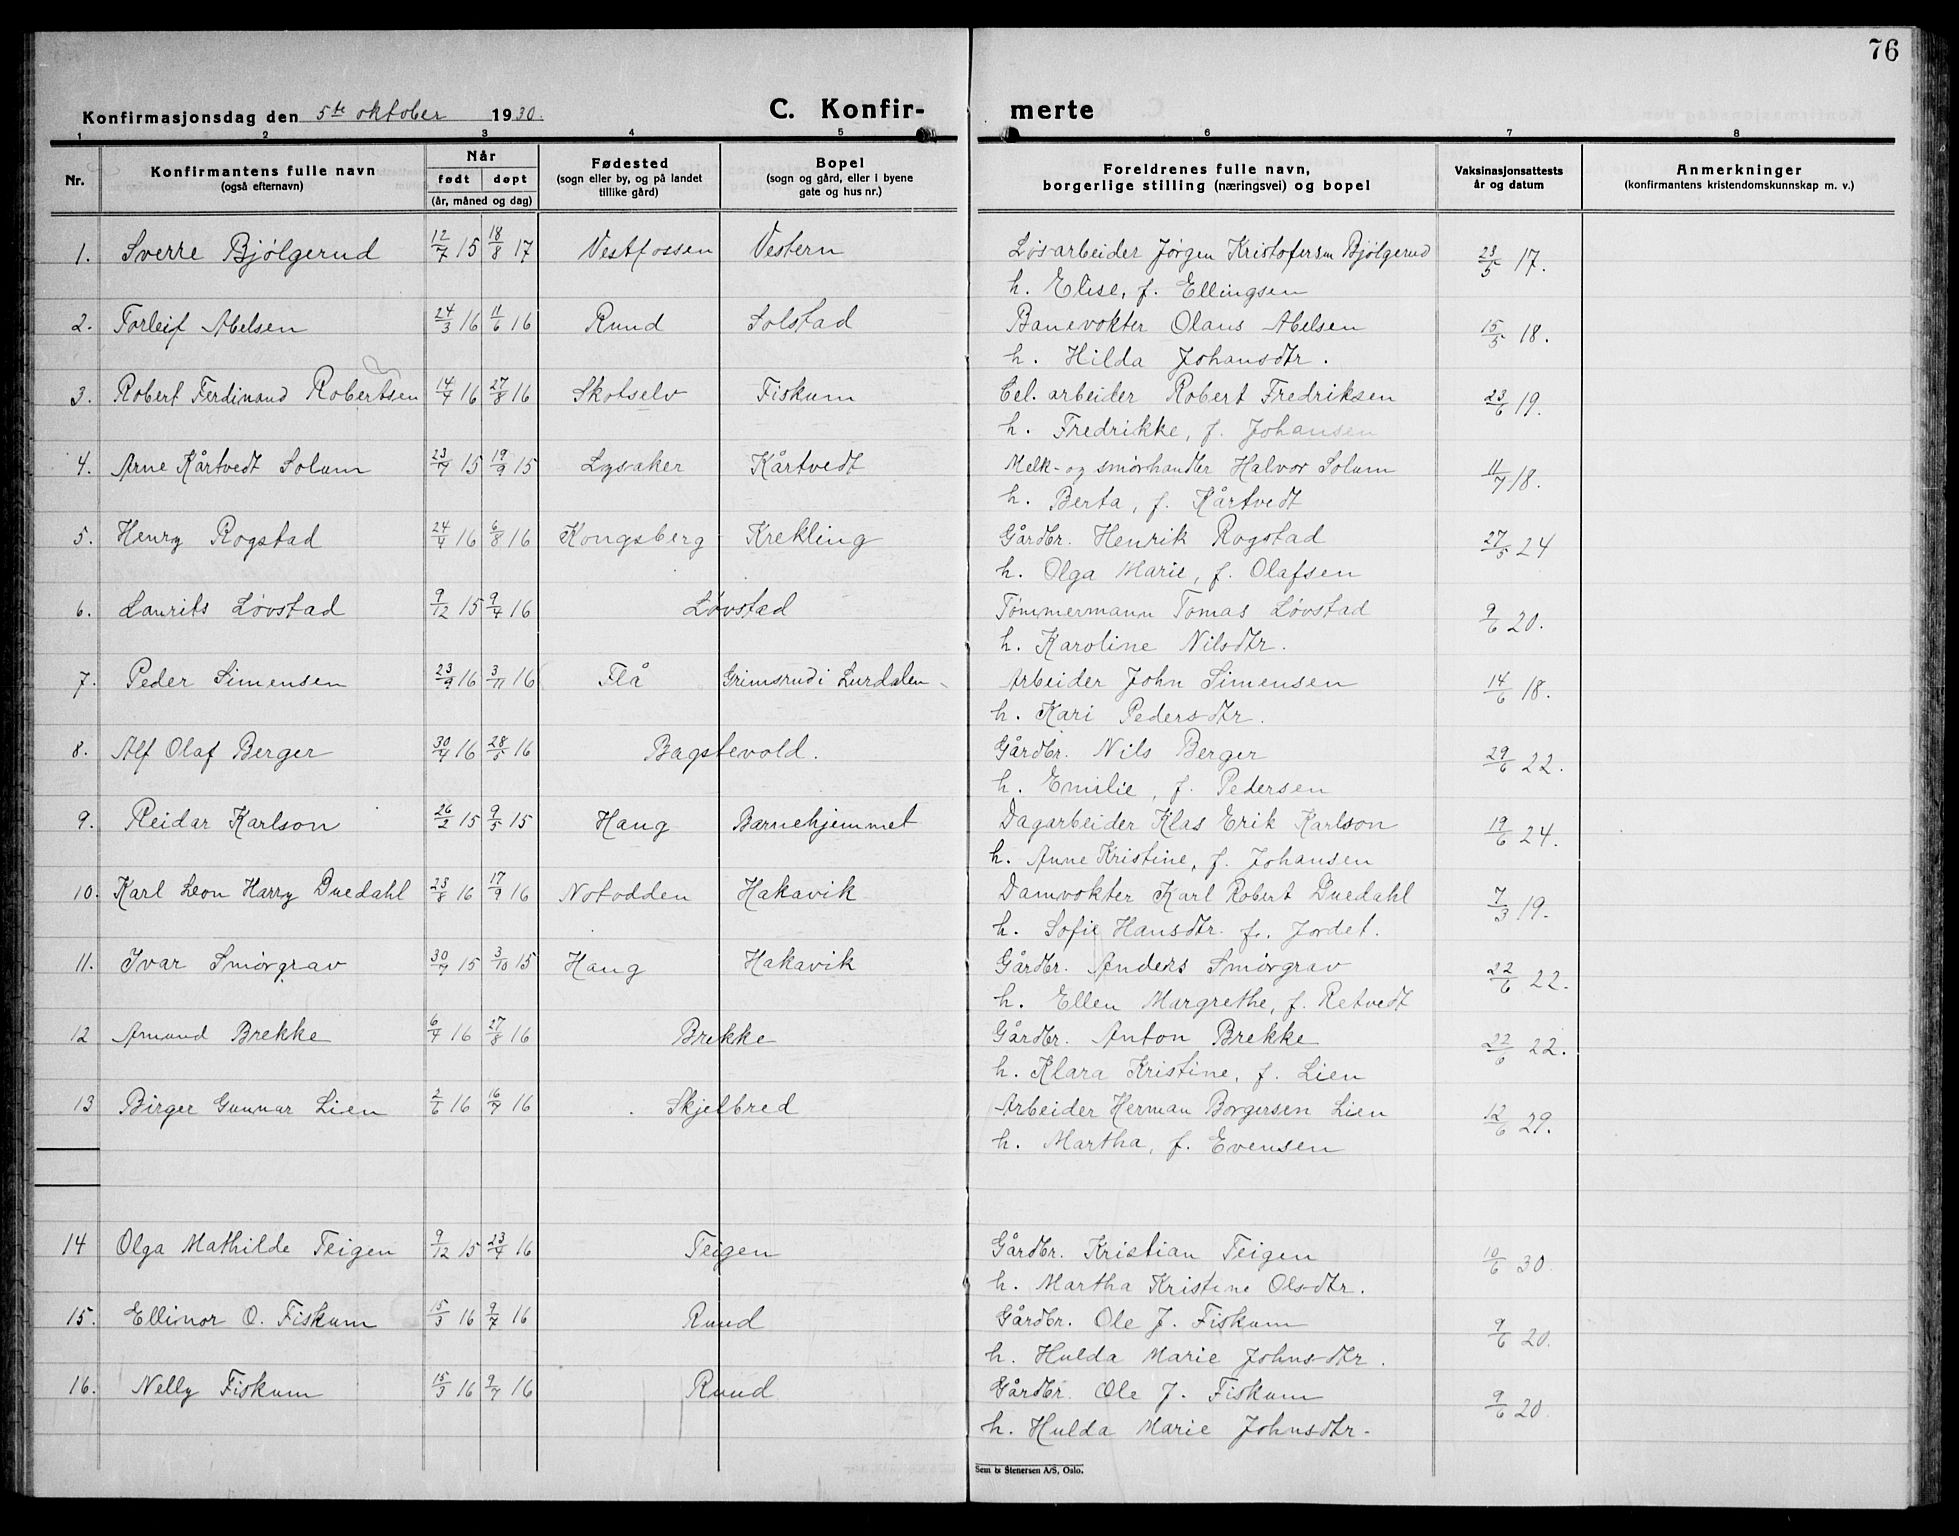 76
Konfirmasjonsdag den 5te oktober 1930.
C. Konfir-
merte
1 2 3 4 5 6 7 8
Nr. Konfirmantens fulle navn (også efternavn) Når født døpt (år, måned og dag) Fødested (sogn eller by, og på landet tillike gård) Bopel (sogn og gård, eller i byene gate og hus nr.) Foreldrenes fulle navn, borgerlige stilling (næringsvei) og bopel Vaksinasjonsattests år og datum Anmerkninger (konfirmantens kristendomskunnskap m. v.)
1. Sverre Bjølgerud 12/7 15 18/8 17 Vestfossen Vestern Løsarbeider Jørgen Kristofersen Bjølgerud 23/5 17.
h. Elise, f. Ellingsen
2. Torleif Abelsen 24/3 16 11/6 16 Ruud Solstad Banevokter Olaus Abelsen 15/5 18.
h. Hilda Johansdtr.
3. Robert Ferdinand Robertsen 14/4 16 27/8 16 Skotselv Fiskum Cel. arbeider Robert Fredriksen 23/6 19.
h. Fredrikke, f. Johansen
4. Arne Kårtvedt Solum 23/7 15 19/9 15 Lysaker Kårtvedt Melk- og smørhandler Halvor Solum 11/7 18.
h. Berta, f. Kårtvedt
5. Henry Rogstad 24/4 16 6/8 16 Kongsberg Krekling Gårdbr. Henrik Rogstad 27/5 24
h. Olga Marie, f. Olafsen
6. Laurits Løvstad 9/12 15 9/4 16 Løvstad Tømmermann Tomas Løvstad 9/6 20.
h. Karoline Nilsdtr.
7. Peder Simensen 23/9 16 3/11 16 Flå Grimsrud i Lurdalen Arbeider John Simensen 14/6 18.
h. Kari Pedersdtr.
8. Alf Olaf Berger 30/4 16 28/5 16 Bagstevold. Gårdbr. Nils Berger 29/6 22.
h. Emilie, f. Pedersen
9. Reidar Karlson 26/2 15 9/5 15 Haug Barnehjemmet Dagarbeider Klas Erik Karlson 19/6 24.
h. Anne Kristine, f. Johansen
10. Karl Leon Harry Duedahl 23/8 16 17/9 16 Notodden Hakavik Damvokter Karl Robert Duedahl 7/3 19.
h. Sofie Hansdtr. f. Jordet.
11. Ivar Smørgrav 30/7 15 3/10 15 Haug Hakavik Gårdbr. Anders Smørgrav 22/6 22.
h. Ellen Margrethe, f. Retvedt
12 Amund Brekke 6/4 16 27/8 16 Brekke Gårdbr. Anton Brekke 22/6 22.
h. Klara Kristine, f. Lien
13 Birger Gunnar Lien 2/6 16 16/7 16 Skjelbred Arbeider Herman Borgersen Lien 12/6 29.
h. Martha, f. Evensen
14 Olga Mathilde Teigen 9/12 15 23/4 16 Teigen Gårdbr. Kristian Teigen 10/6 30
h. Martha Kristine Olsdtr.
15. Ellinor O. Fiskum 15/3 16 9/7 16 Ruud Gårdbr. Ole J. Fiskum 9/6 20.
h. Hulda Marie Johnsdtr.
16. Nelly Fiskum 15/3 16 9/7 16 Ruud Gårdbr. Ole J. Fiskum 9/6 20.
h. Hulda Marie Johnsdtr.
Sem & Stenersen A/S, Oslo.